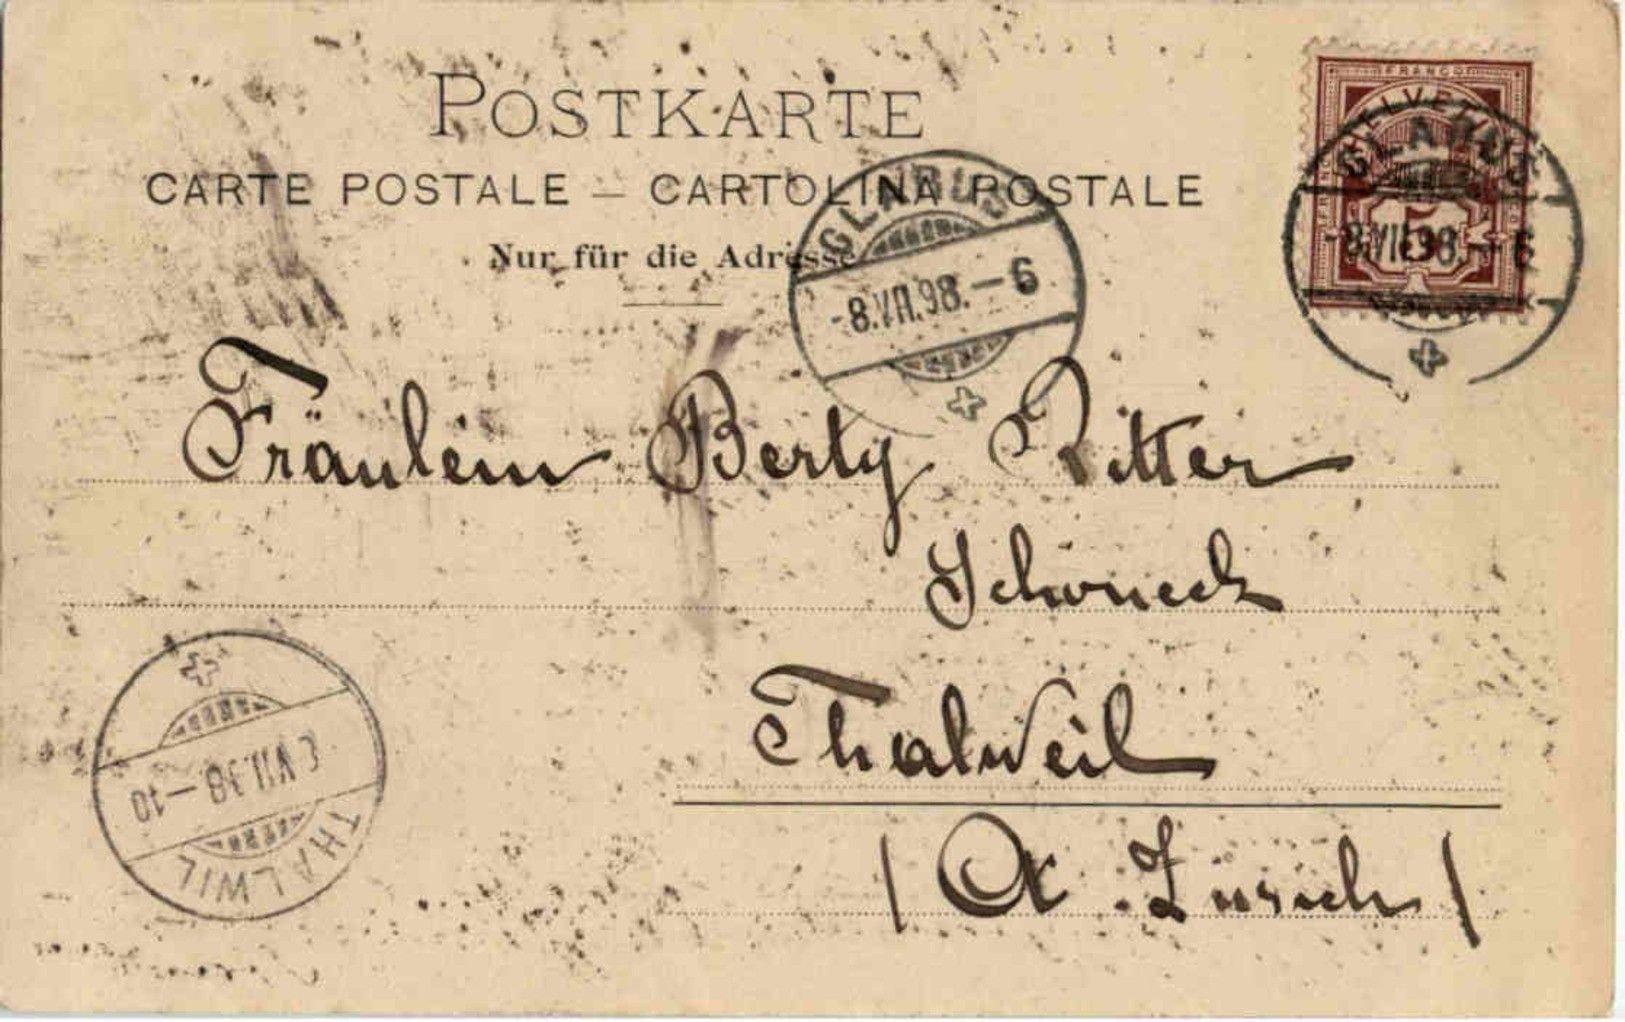 POSTKARTE
CARTE POSTALE – CARTOLINA POSTALE
Nur für die Adresse
FRANCO
HELVETIA
5
GLARUS
-8.VII.98.–6
GLARUS
-8.VII.98.–6
Fräulein Berty Ritter
Schöneck
Thalweil
(Ct. Zürich)
VII.98–10
THALWIL